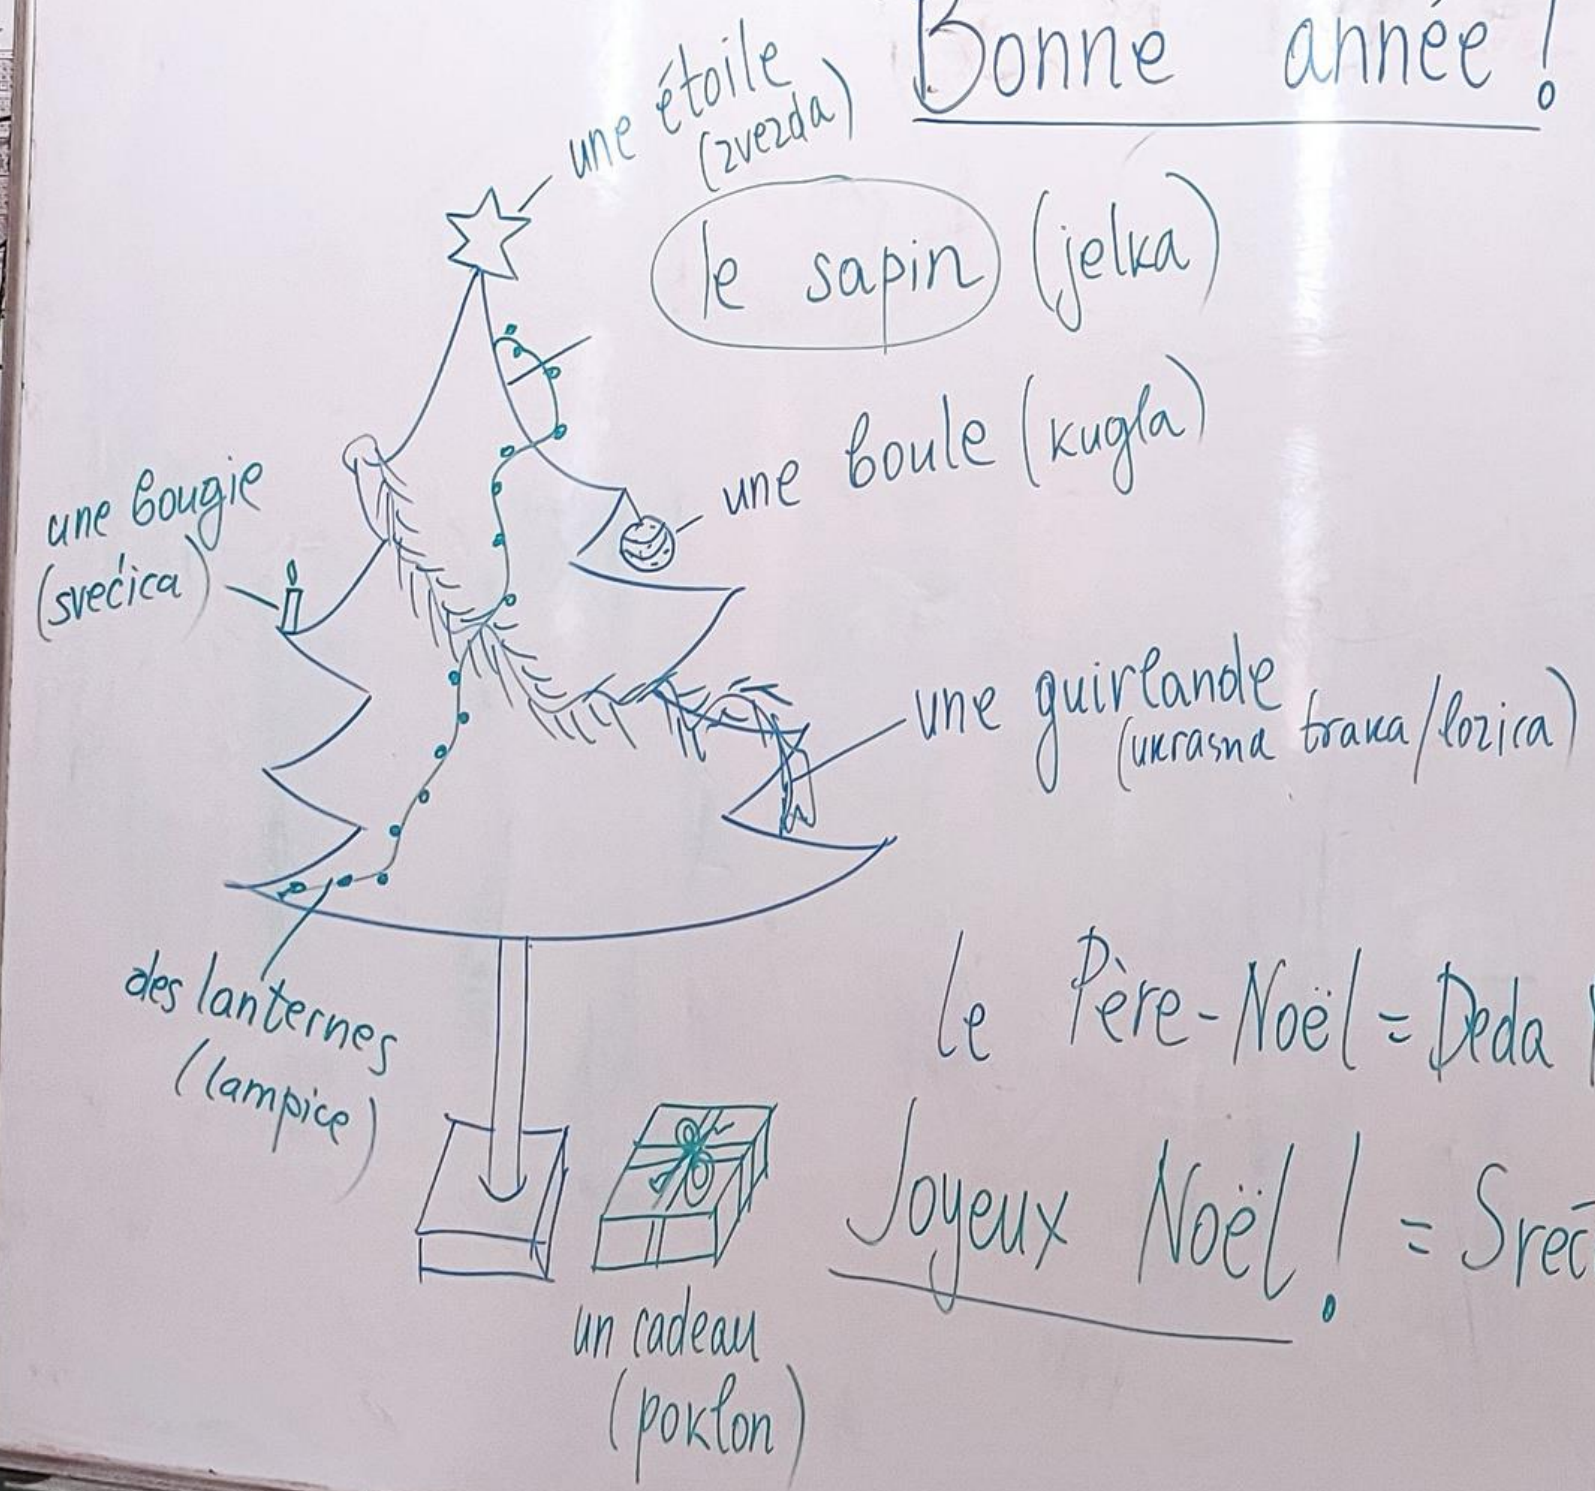 Bonne année!
une étoile
(zvezda)
le sapin (jelka)
une boule (kugla)
une bougie
(svećica)
une guirlande
(ukrasna traka/lozica)
des lanternes
(lampice)
le Père-Noël = Deda
Joyeux Noël! =
un cadeau
(poklon)